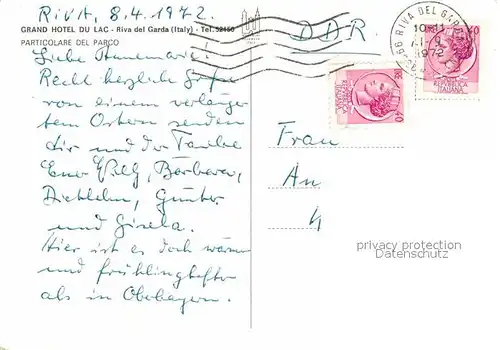 Riva, 8.4.1972.
GRAND HOTEL DU LAC - Riva del Garda (Italy) - Tel. 52150
PARTICOLARE DEL PARCO
DDR.
Liebe Annemarie!
Recht herzliche Grüße
von einem verlänger-
ten Ostern senden
dir und der Familie
Euer Willy, Barbara,
Günter
und Gisela.
Hier ist es doch warm
und frühlinghafter
als in Oberbayern.
Frau
An
RIVA DEL GARDA
1972
40
REPUBBLICA
ITALIANA
40
privacy protection
Datenschutz